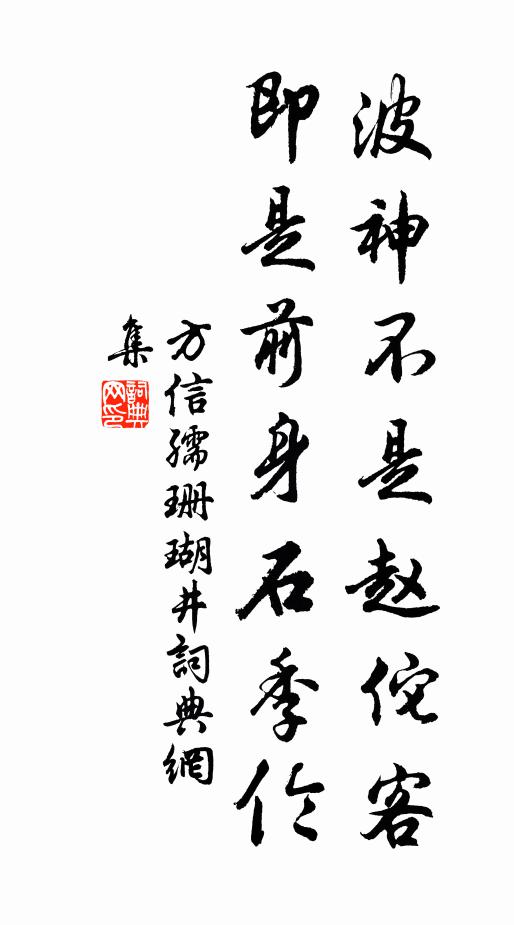 波神不是赵佗客
即是前身石季伦
方信孺珊瑚井詞典網
集
詞典網印